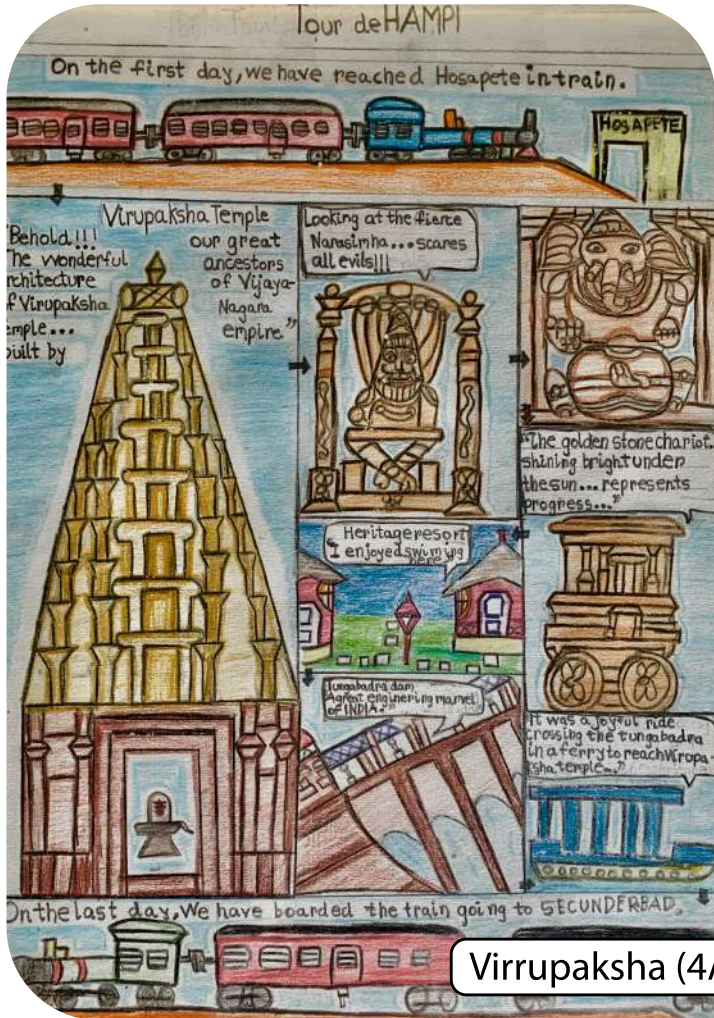 Tour de HAMPI
On the first day, we have reached Hosapete in train.
HOSAPETE
Virupaksha Temple
"Behold!!!
The wonderful
rchitecture
f Virupaksha
emple...
built by
our great
ancestors
of Vijaya-
Nagara
empire"
Looking at the fierce
Narasimha...scares
all evils!!!
"The golden stone chariot.
shining bright under
the sun... represents
progress..."
Heritage resort
"I enjoyed swiming
here"
Tungabadra dam
A great enginering marvel
of INDIA."
It was a joyful ride
crossing the tungabadra
in a ferry to reach Virupa-
ksha temple..."
On the last day, We have boarded the train going to SECUNDERBAD.
Virrupaksha (4/